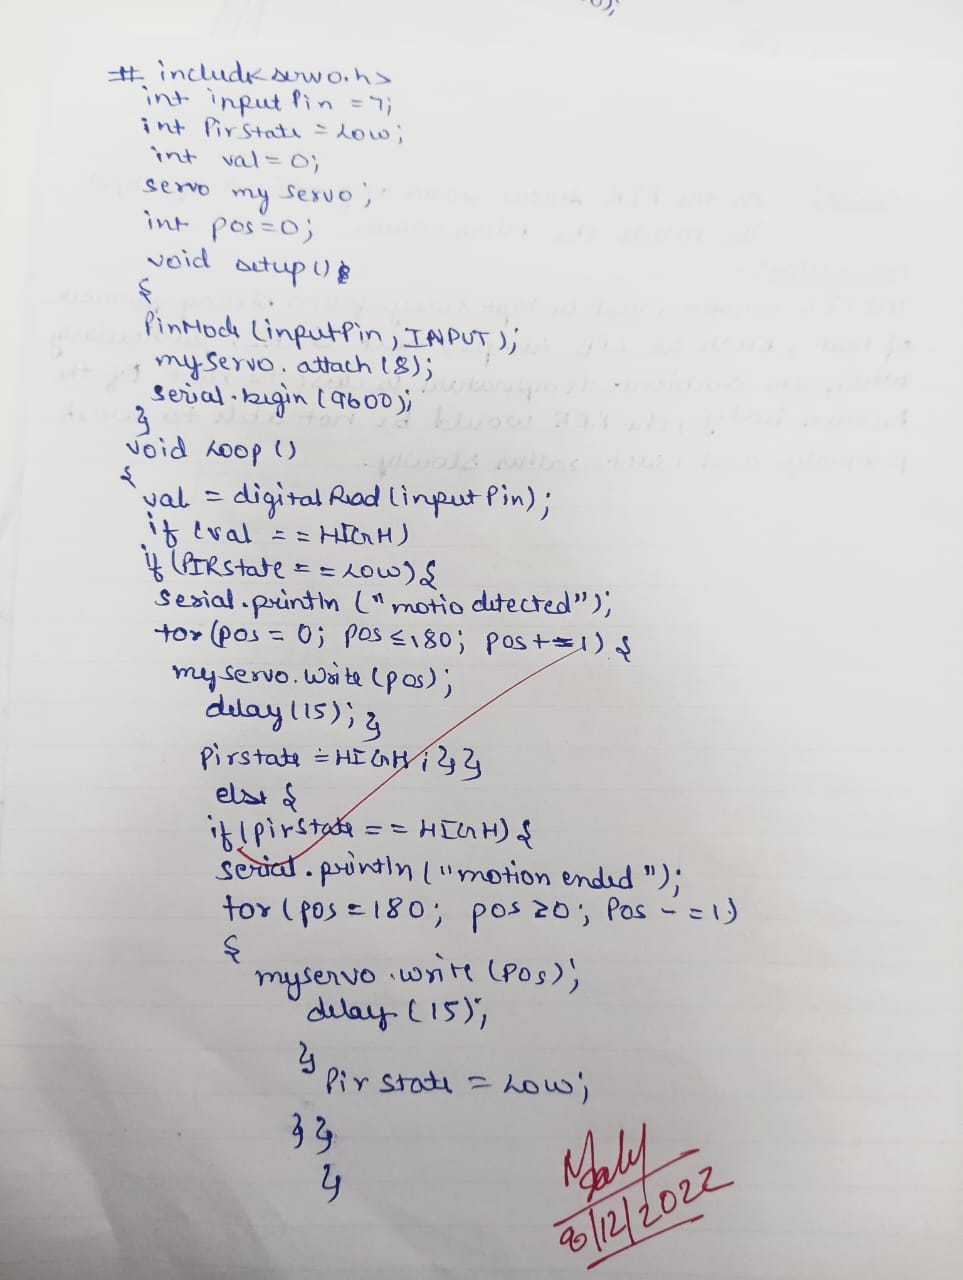 # include<servo.h>
int input Pin = 7;
int PirState = Low;
int val = 0;
servo my servo;
int pos=0;
void setup()
{
PinMode (inputPin, INPUT);
myservo. attach (8);
serial.begin (9600);
}
void Loop ()
{
val = digital Read (input Pin);
if (val == HIGH)
if (PIRstate == LOW) {
serial.println ("motio detected");
for (pos = 0; pos ≤180; pos +=1) {
myservo. write (pos);
delay (15); }
Pirstate = HIGH; } }
else {
if (pirstate == HIGH) {
serial.println ("motion ended");
for (pos = 180; pos ≥0; Pos -=1)
{
myservo.write (Pos);
delay (15);
}
Pir state = Low;
} }
}
8/12/2022